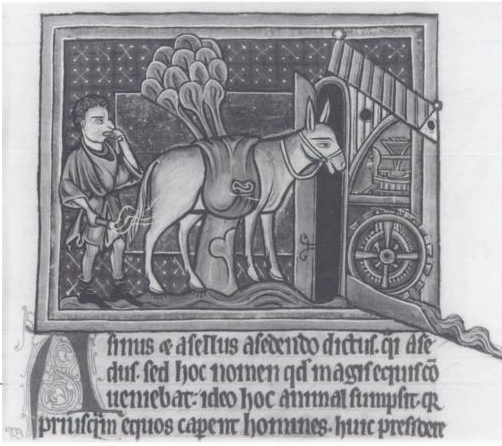 Asinus & asellus asedendo dictus. q̄i ase
dus. sed hoc nomen qd̛ magis equis cō
ueniebat: ideo hoc animal sumpsit. qr
priusq̄m equos cap̄ent homines. huic presidere